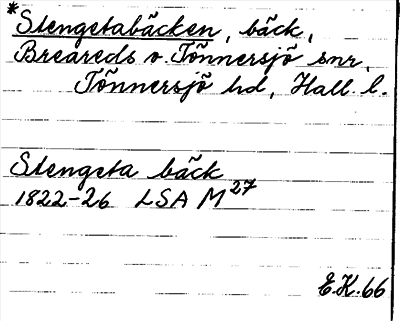 *Slengetabäcken, bäck,
Breareds o. Tönnersjö snr,
Tönnersjö hd, Hall. l.
Slengeta bäck
1822-26 LSA M27
E.K. 66